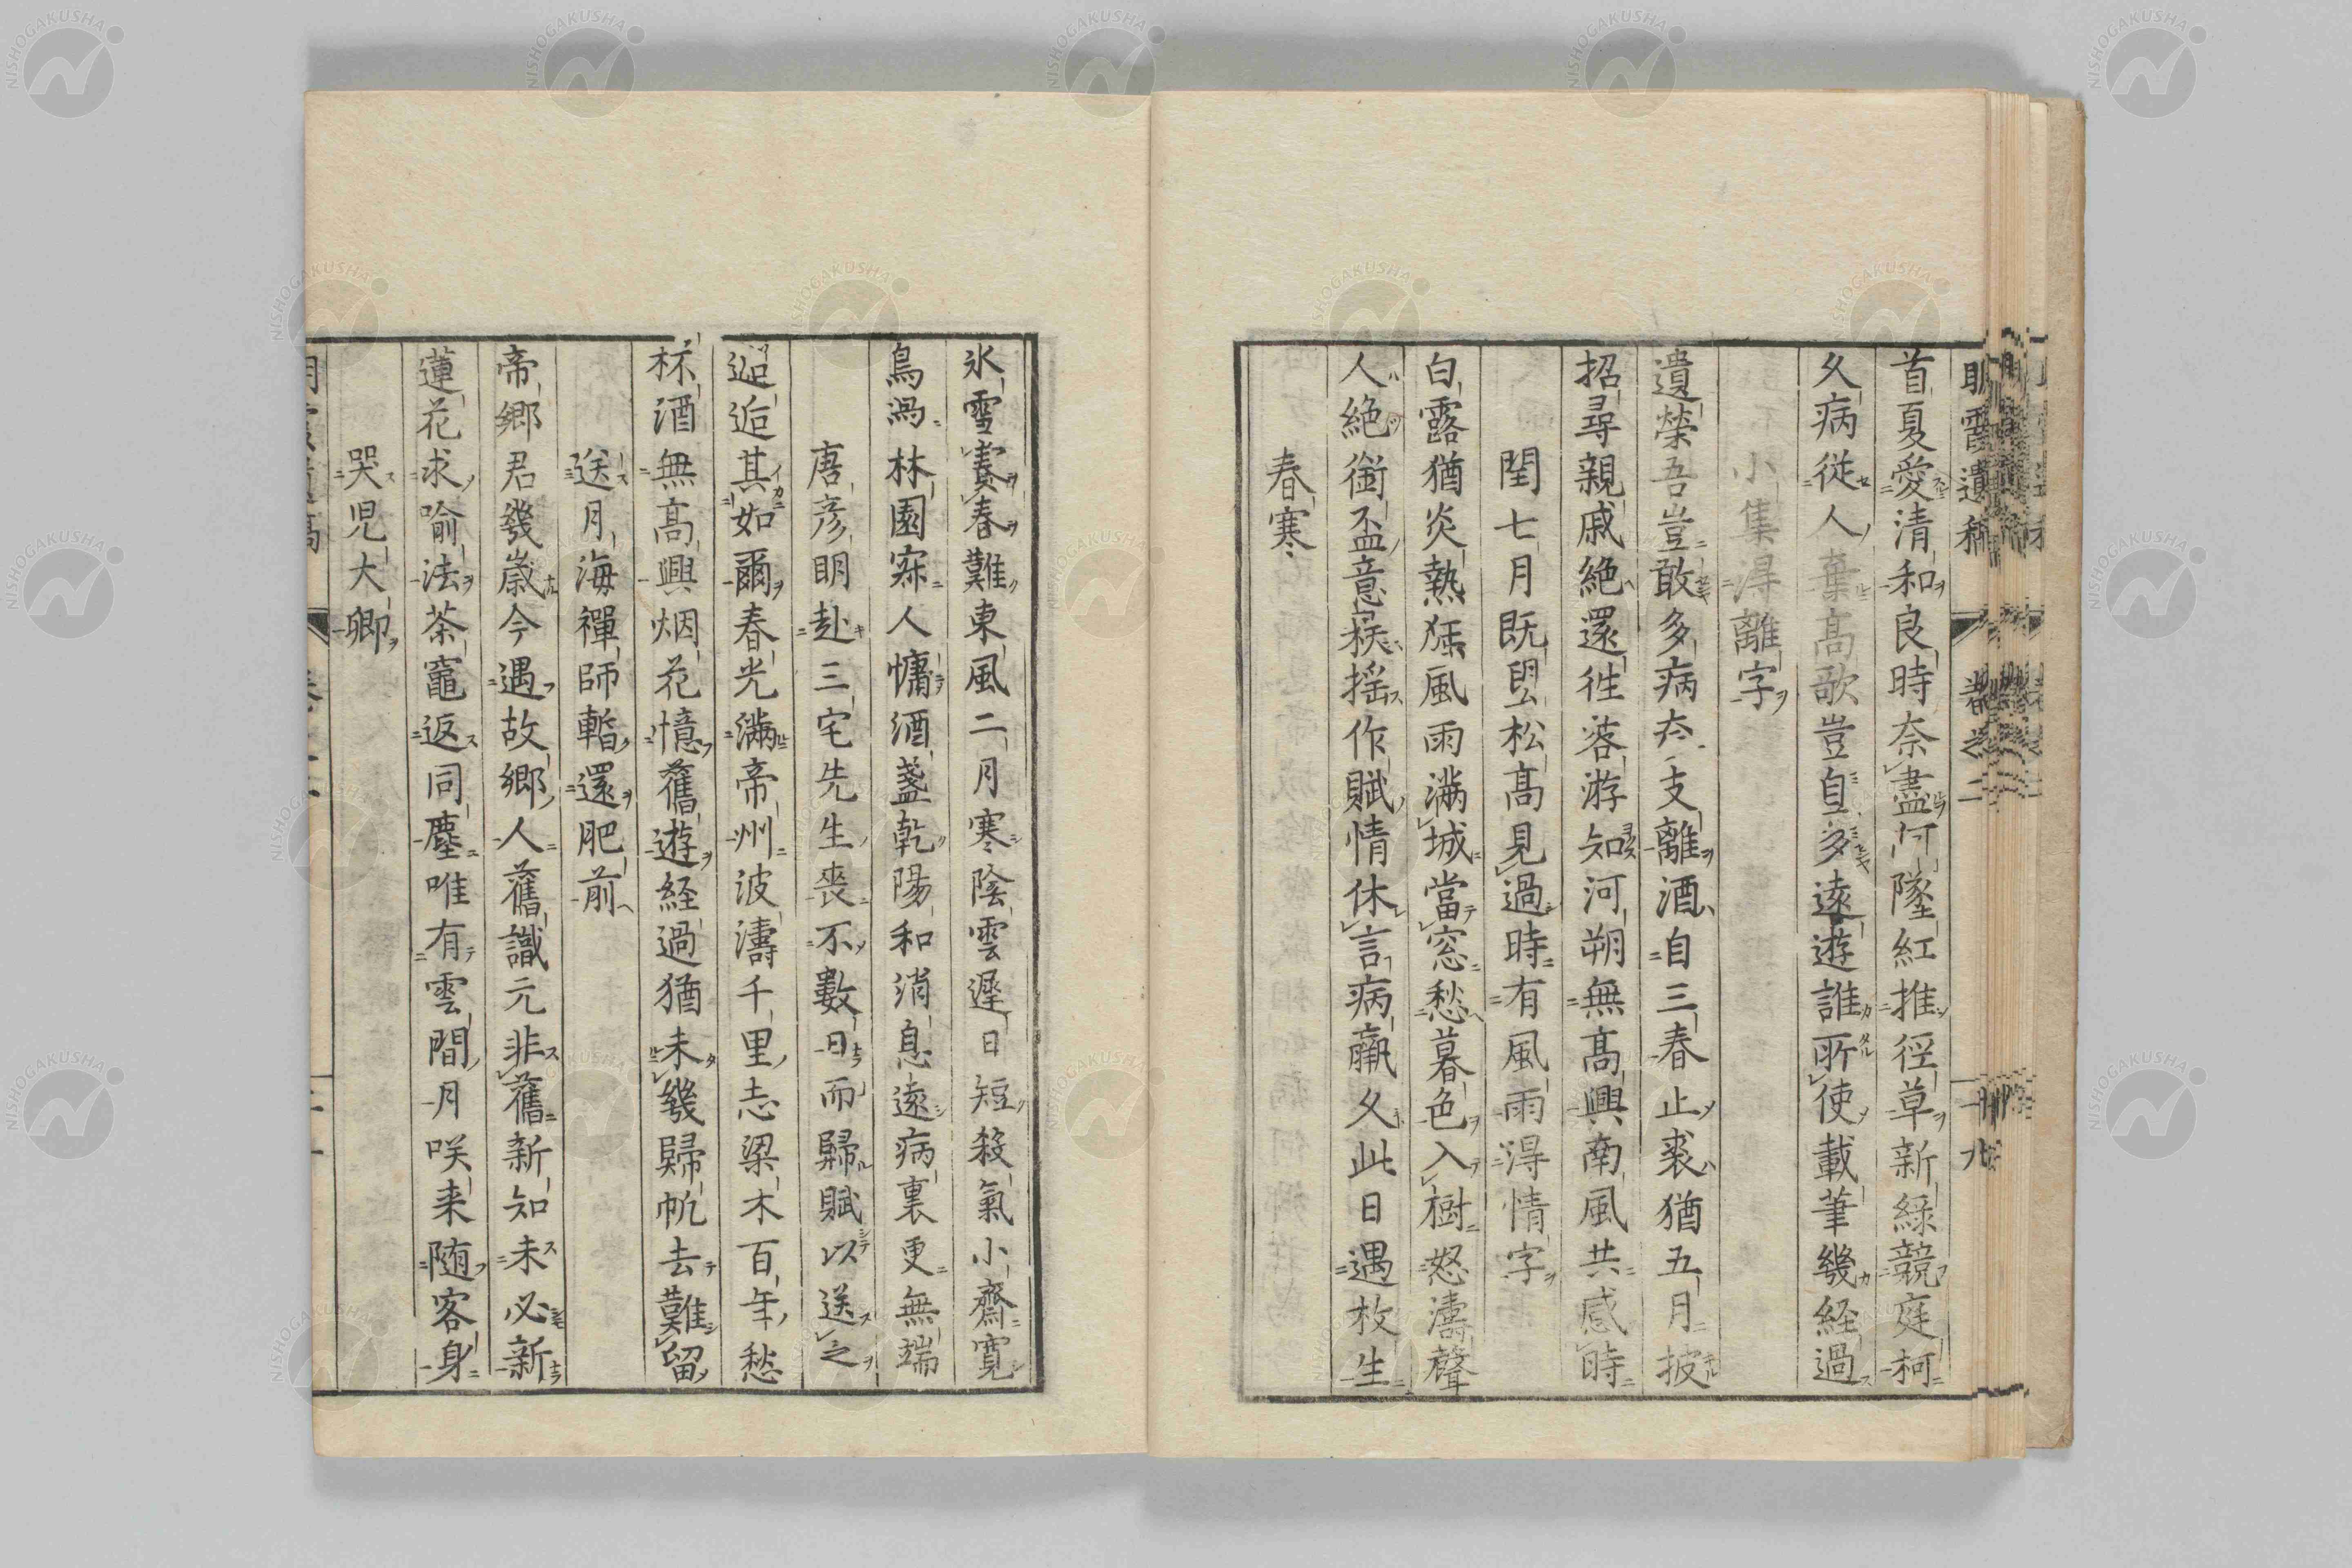 首夏愛清和良時奈盡何墜紅推徑草新綠競庭柯
久病從人棄髙歌豈自多遠遊誰所使載筆幾経過
小集得離字
遺榮吾豈敢多病太支離酒自三春止裘猶五月披
招尋親戚絶還徃落游知河朔無髙興南風共感時
閏七月既望松髙見過時有風雨得情字
白露猶炎熱狂風雨滿城當窓愁暮色入樹怒濤聲
人絶銜盃意秋揺作賦情休言病羸久此日遇枚生
春寒
氷雪賽春難東風二月寒陰雲遲日短殺氣小齋寬
鳥溈林園寂人慵酒盞乾陽和消息遠病裏更無端
唐彦明赴三宅先生喪不數日而歸賦以送之
邂逅其如爾春光滿帝州波濤千里志梁木百年愁
杯酒無髙興烟花憶舊遊経過猶未幾歸帆去難留
送月海禪師暫還肥前
帝郷君幾歳今遇故郷人舊識元非舊新知未必新
蓮花求喻法茶竈返同塵唯有雲間月咲来随客身
哭児大卿
遺稿
卷之二
十九